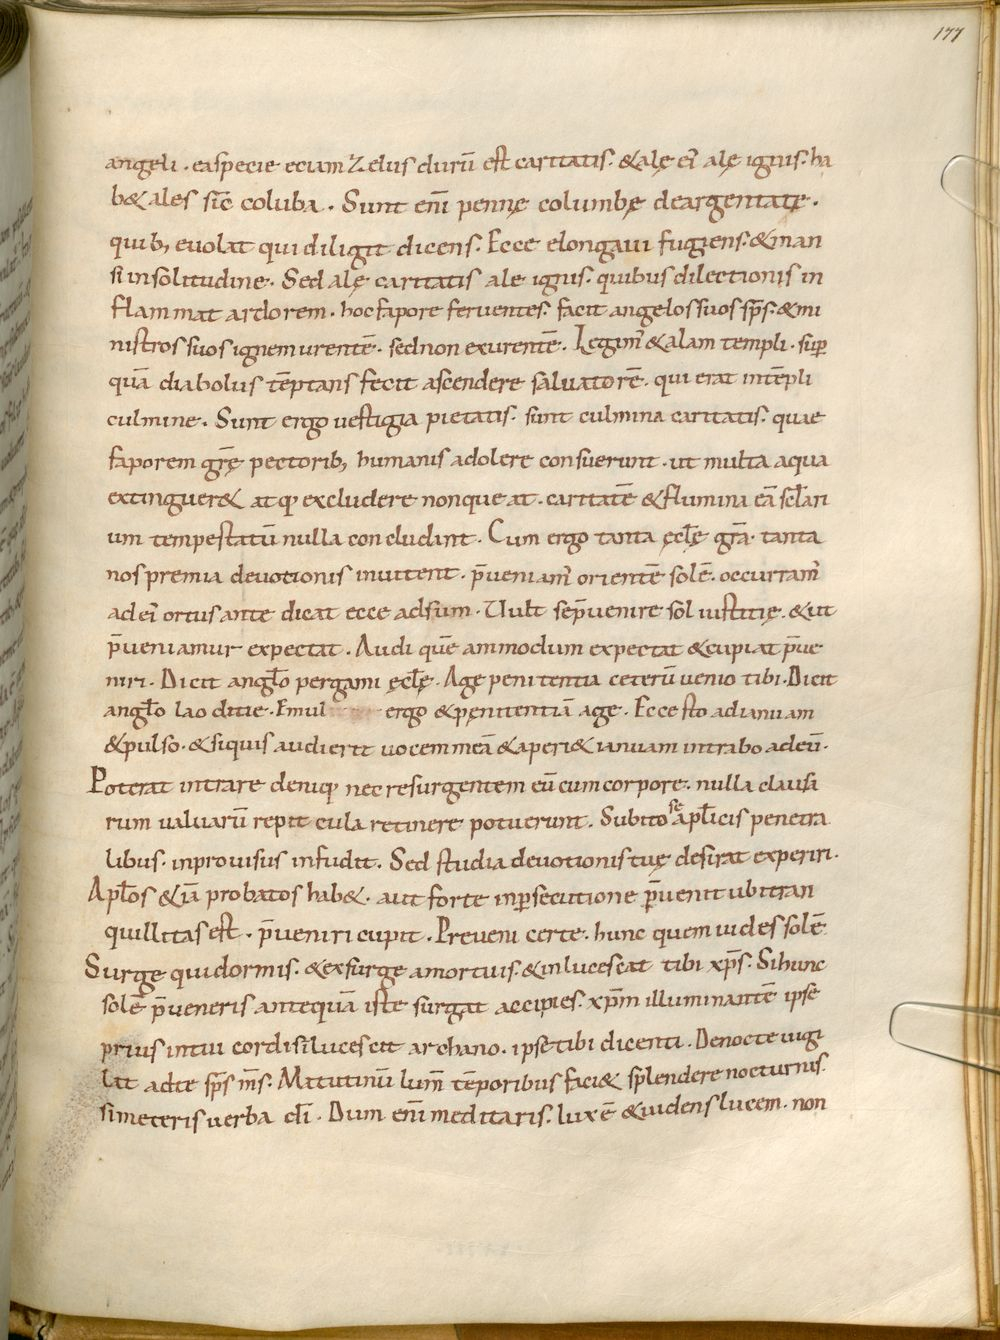 177
angeli · ea specie eciam Zelus durū est caritatis · &alę eı̄ alę ignis · ha
b& ales sic̄ coluba · Sunt enī pennę columbę deargentatę ·
quib; euolat qui diligit dicens · Ecce elongaui fugiens · & man
si in solitudine · Sed alę caritatis ale ignis · quibus dilectionis in
flammat ardorem · hoc fapore feruentes · facit angelos suos sp̄s · & mi
nistros suos ignem urentē · sed non exurentē · Legim̄ & alam templi · sup̄
quā diabolus tēptans fecit ascendere saluatorē · qui erat in tēpli
culmine · Sunt ergo uestigia pietatis · sunt culmina caritatis · quae
faporem gr̄ę pectorib; humanis adolere consuerunt · ut multa aqua
extinguer& atq; excludere non queat · caritatē & flumina eā scl̄ari
um tempestatū nulla concludant · Cum ergo tanta ęcl̄ę gr̄a · tanta
nos premia deuotionis inuitent · p̄ueniam̄ orientē solē · occurram̄
ad eı̄ ortus ante dicat ecce adsum · Uult se p̄uenire sol iustitię · & ut
p̄ueniamur expectat · Audi quē ammodum expectat & cupiat p̄ue
niri · Dicit angl̄o pergami ęcl̄ę · Age penitentia ceterū uenio tibi · Dicit
angl̄o laoditie · Emul ergo & pęnitentiā age · Ecce sto ad ianuam
& pulso · & siquis audierit uocem meā & aperi& ianuam intrabo ad eū ·
Poterat intrare deniq; nec resurgentem eū cum corpore · nulla clausa
rum ualuarū repit cula retinere potuerunt · Subito se apl̄icis penetra
libus · inprouisus infudit · Sed studia deuotionis tuę desirat experiri ·
Apl̄os & iā probatos hab& · aut forte in p̄secutione p̄uenit ubi tran
quillitas est · p̄ueniri cupit · Preueni certe · hunc quem uides solē
Surge qui dormis · & exsurge a mortuis · & inlucescat tibi xp̄s · Si hunc
solē p̄ueneris antequā iste surgat accipies · xp̄m illuminantē ipse
prius in tui cordis ilucescit archano · ipse tibi dicenti · De nocte uigi
lat ad te sp̄s m̄s · Matutinū lum̄ tēporibus faci& splendere nocturnis ·
si meteris uerba dī · Dum enī meditaris · lux ē & uidens lucem · non